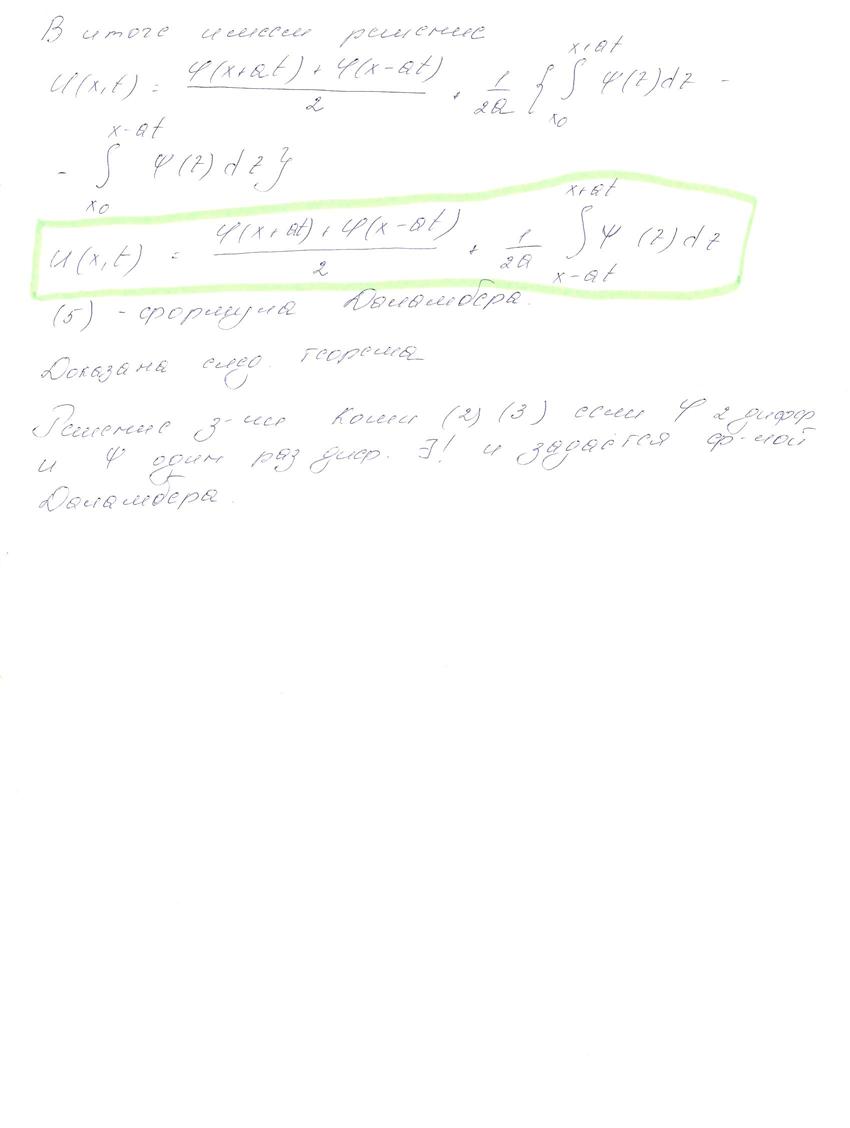 В итоге имеем решение
U(x,t) = (φ(x+at) + φ(x-at))/2 + 1/2a { ∫_{x0}^{x+at} ψ(z)dz -
- ∫_{x0}^{x-at} ψ(z)dz }
U(x,t) = (φ(x+at) + φ(x-at))/2 + 1/2a ∫_{x-at}^{x+at} ψ(z)dz
(5) - формула Даламбера.
Доказана след. теорема
Решение з-чи Коши (2) (3) если φ 2 дифф
и ψ один раз диф. ∃! и задаётся ф-лой
Даламбера.